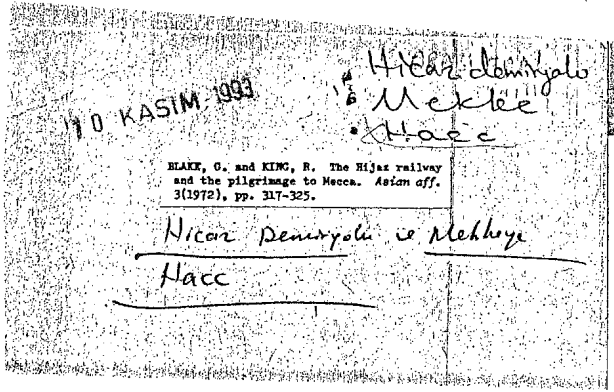 Hicaz demiryolu
Mekke
Hacc
10 KASIM 1993
BLAKE, G. and KING, R. The Hijaz railway
and the pilgrimage to Mecca. Asian aff.
3(1972), pp. 317-325.
Hicaz Demiryolu ve Mekkeye
Hacc